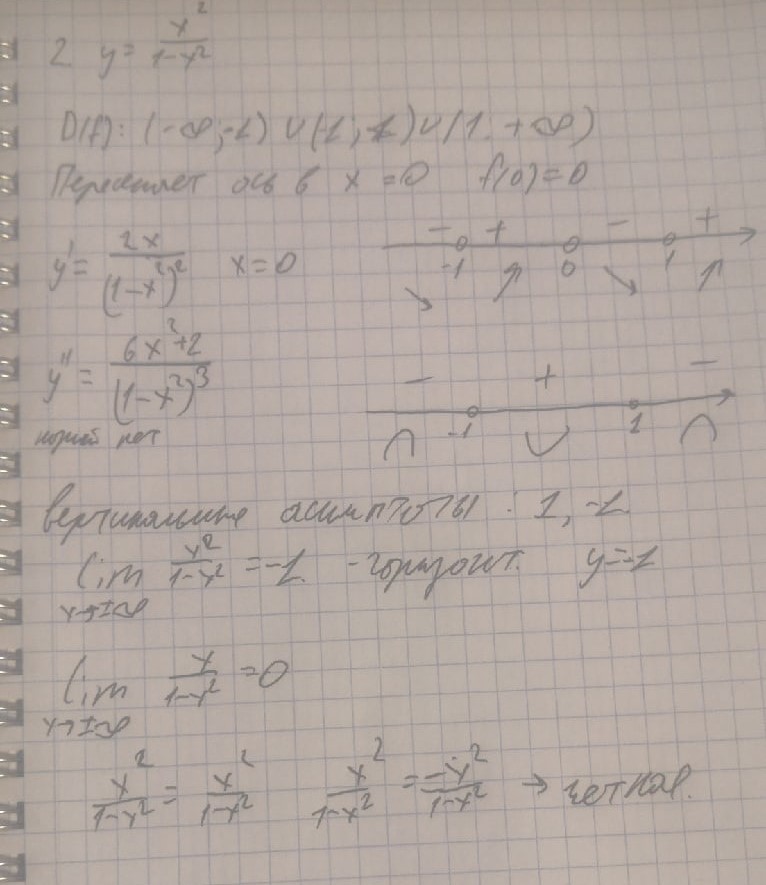 2 y = x²/(1-x²)
D(f): (-∞;-1) ∪ (-1; 1) ∪ (1; +∞)
Пересекает ось в x = 0 f(0) = 0
y' = 2x/(1-x²)² x = 0
- + - +
-1 0 1
↘ ↗ ↘ ↗
y'' = (6x²+2)/(1-x²)³
- + -
-1 1
∩ ∪ ∩
корней нет
вертикальные асимптоты : 1, -1
lim x→±∞ x²/(1-x²) = -1 - горизонт. y = -1
lim x→±∞ x/(1-x²) = 0
x²/(1-x²) = x²/(1-x²) x²/(1-x²) = -x²/(1-x²) → четная.